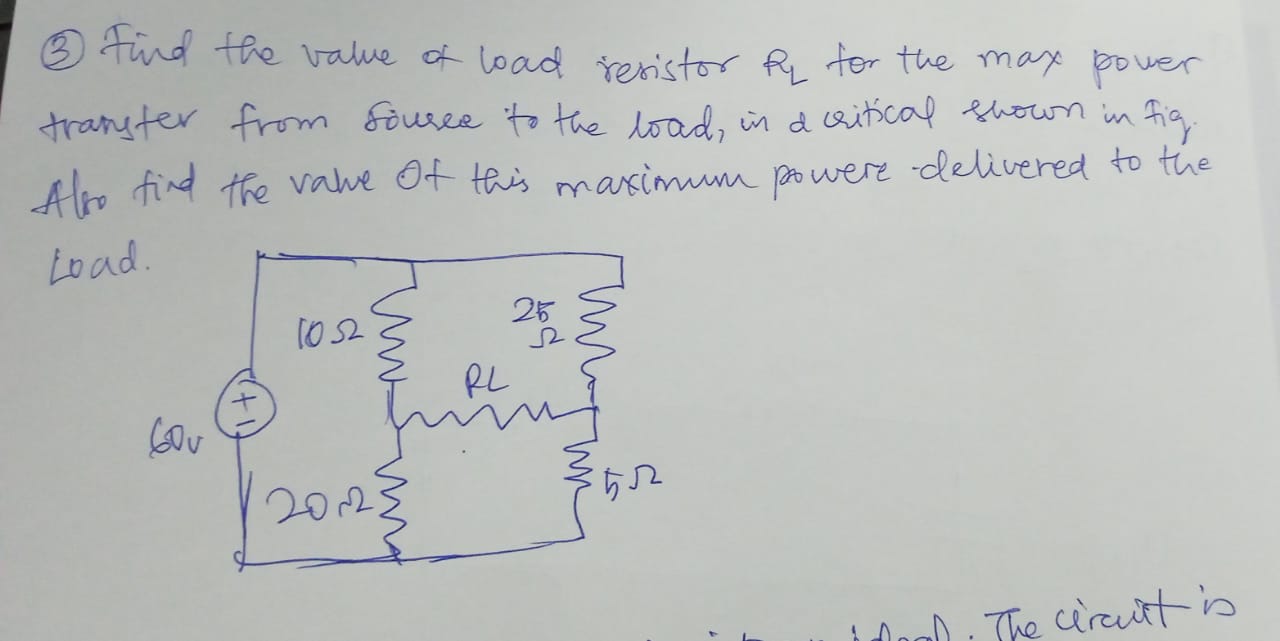 ③ Find the value of load resistor RL for the max power
transfer from source to the load, in a critical shown in fig.
Also find the value Of this maximum powere delivered to the
Load.
10Ω
25
Ω
RL
60v
20Ω
5Ω
The circuit is